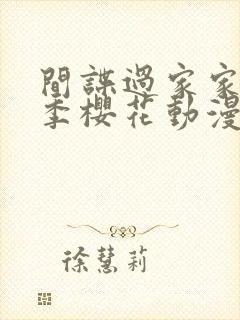 間諜過家家
季櫻花動漫
徐慧莉